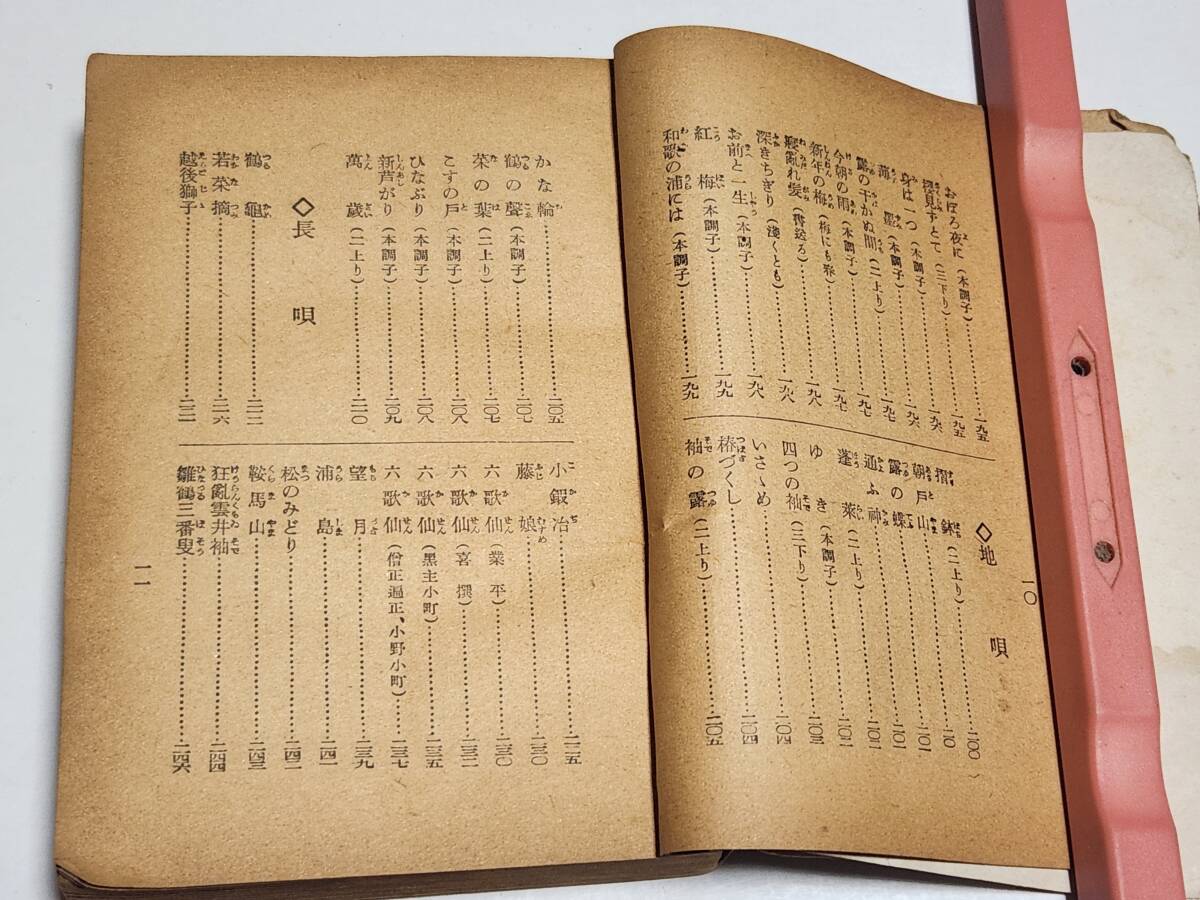 おぼろ夜に(本調子)……一九五
櫻見すとて(三下り)……一九五
身は一つ(本調子)……一九六
薄墨(本調子)……一九六
露の干かぬ間(二上り)……一九七
今朝の雨(本調子)……一九七
新年の梅(梅にも春)……一九八
寢亂れ髮(書送る)……一九八
深きちぎり(淺くとも)……一九八
お前と一生(本調子)……一九九
紅梅(本調子)……一九九
和歌の浦には(本調子)……一九九
◇地唄
摺鉢(二上り)……二〇〇
朝戸山……
露の蝶……二〇一
通ふ神……二〇一
蓬萊(二上り)……二〇二
ゆき(本調子)……二〇三
四つの袖(三下り)……二〇四
いさゝめ……二〇四
椿づくし……二〇四
袖の露(二上り)……二〇五
一〇
かな輪……二〇五
鶴の聲(本調子)……二〇七
菜の葉(二上り)……二〇七
こすの戸(本調子)……二〇八
ひなぶり(本調子)……二〇八
新芦がり(本調子)……二〇九
萬歲(二上り)……二一〇
◇長唄
鶴龜……二一二
若菜摘……二一六
越後獅子……二二一
小鍛冶……二二五
藤娘……二三〇
六歌仙(業平)……二三〇
六歌仙(喜撰)……二三二
六歌仙(黑主小町)……二三五
六歌仙(僧正遍正、小野小町)……二三七
望月……二三九
浦島……二四一
松のみどり……二四二
鞍馬山……二四三
狂亂雲井袖……二四四
雛鶴三番叟……二四六
一一